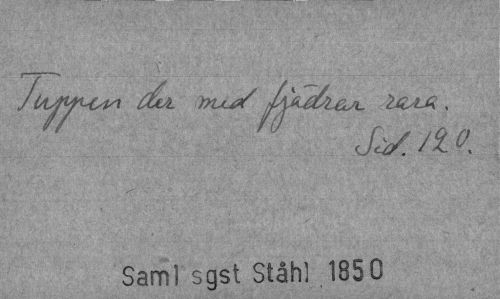 Tuppen der med fjädrar rara.
Sid. 120.
Saml sgst Ståhl 1850